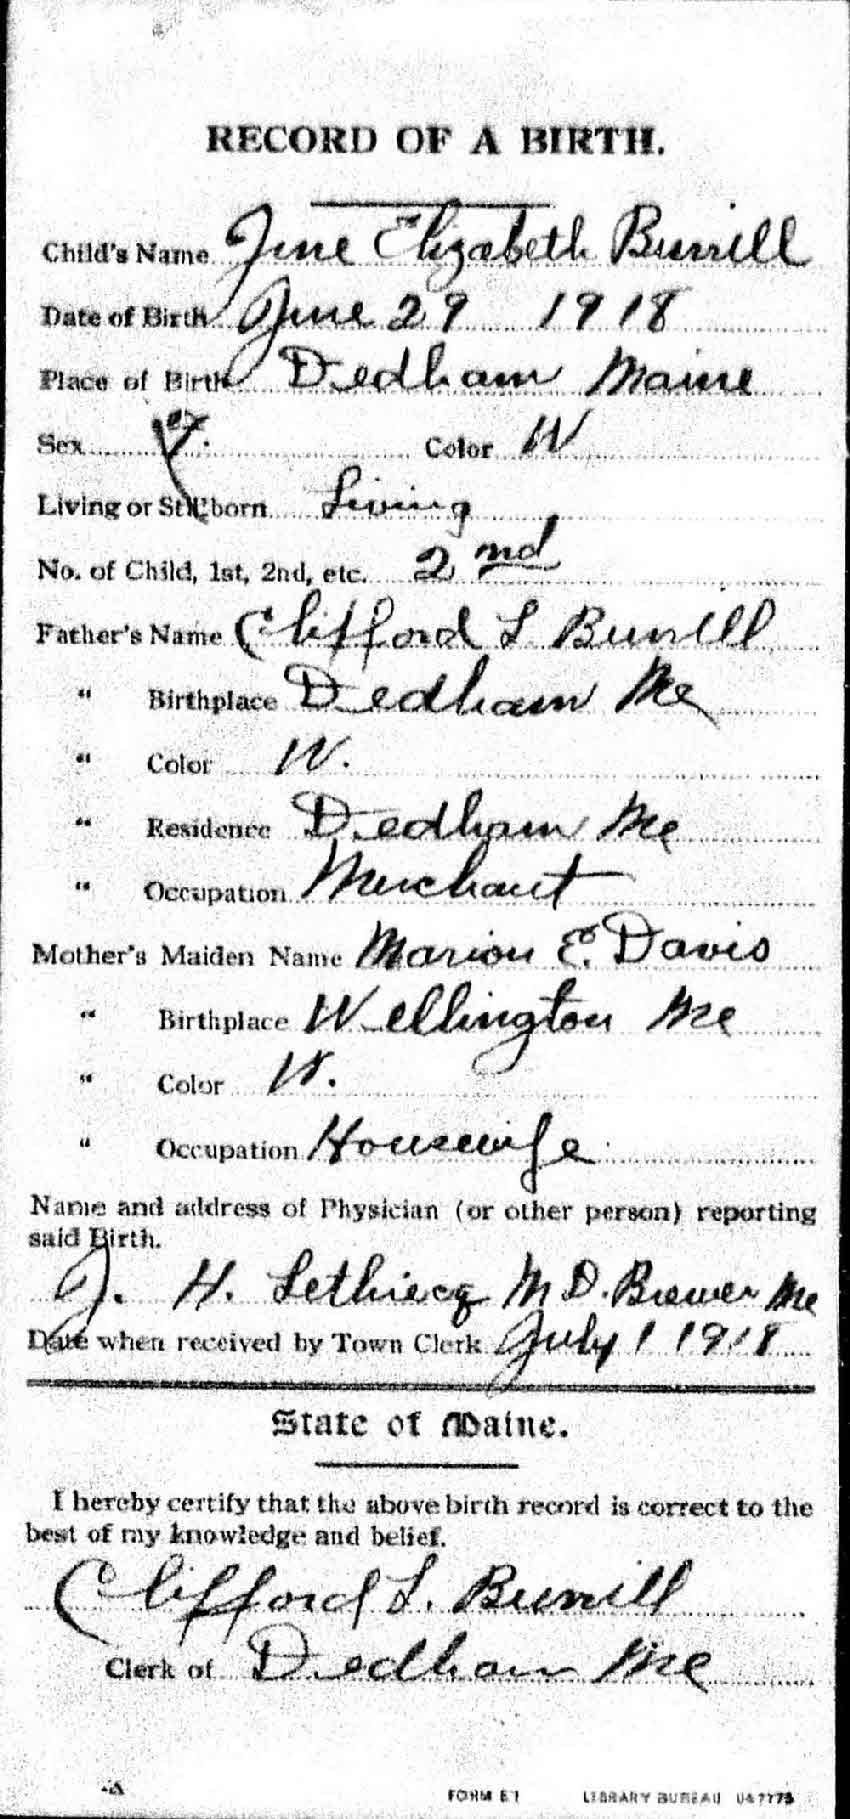 RECORD OF A BIRTH.
Child's Name June Elizabeth Burrill
Date of Birth June 29 1918
Place of Birth Dedham Maine
Sex F. Color W
Living or Stillborn Living
No. of Child, 1st, 2nd, etc. 2nd
Father's Name Clifford L Burrill
" Birthplace Dedham Me
" Color W.
" Residence Dedham Me
" Occupation Merchant
Mother's Maiden Name Marion E. Davis
" Birthplace Wellington Me
" Color W.
" Occupation Housewife
Name and address of Physician (or other person) reporting
said Birth.
J. H. Lethiecq M D. Brewer Me
Date when received by Town Clerk July 1 1918
State of Maine.
I hereby certify that the above birth record is correct to the
best of my knowledge and belief.
Clifford L. Burrill
Clerk of Dedham Me
FORM E1 LIBRARY BUREAU